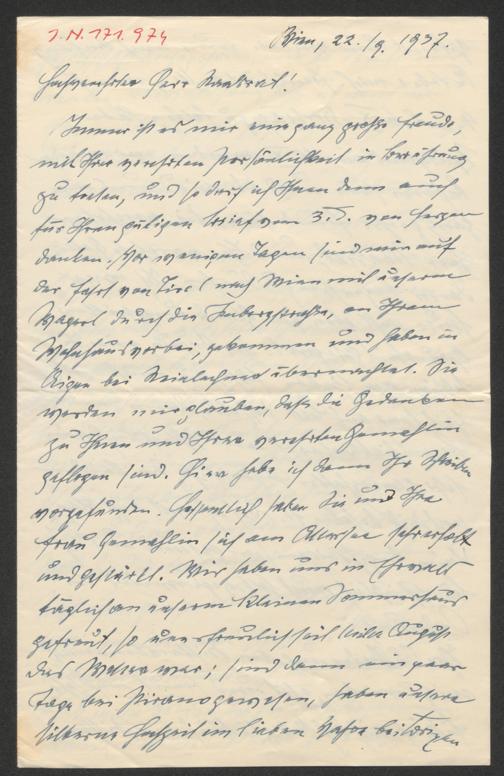 J.N. 171.974
Wien, 22./9. 1937.
Hochverehrter Herr Baurat!
Immer ist es mir eine ganz große Freude,
mit Ihrer verehrten Persönlichkeit in Berührung
zu treten, und so darf ich Ihnen denn auch
für Ihren gütigen Brief vom 3. d. von Herzen
danken. Vor wenigen Tagen sind wir auf
der Fahrt von Tirol nach Wien mit unserem
Wagerl durch die, an Ihrem
Wohnhaus vorbei, gekommen und haben in
Aigen bei übernachtet. Sie
werden mir glauben, daß die Gedanken
zu Ihnen und Ihrer verehrten Gemahlin
geflogen sind. Hier habe ich dann Ihr Schreiben
vorgefunden. Hoffentlich haben Sie und Ihre
Frau Gemahlin sich am Attersee sehr erholt
und gestärkt. Wir haben uns in Ehrwald
täglich an unserem kleinen Sommerhaus
gefreut, so unerfreulich seit Mitte August
das Wetter war; sind dann ein paar
Tage bei Meran gewesen, haben unsere
silberne Hochzeit im lieben bei Brixen